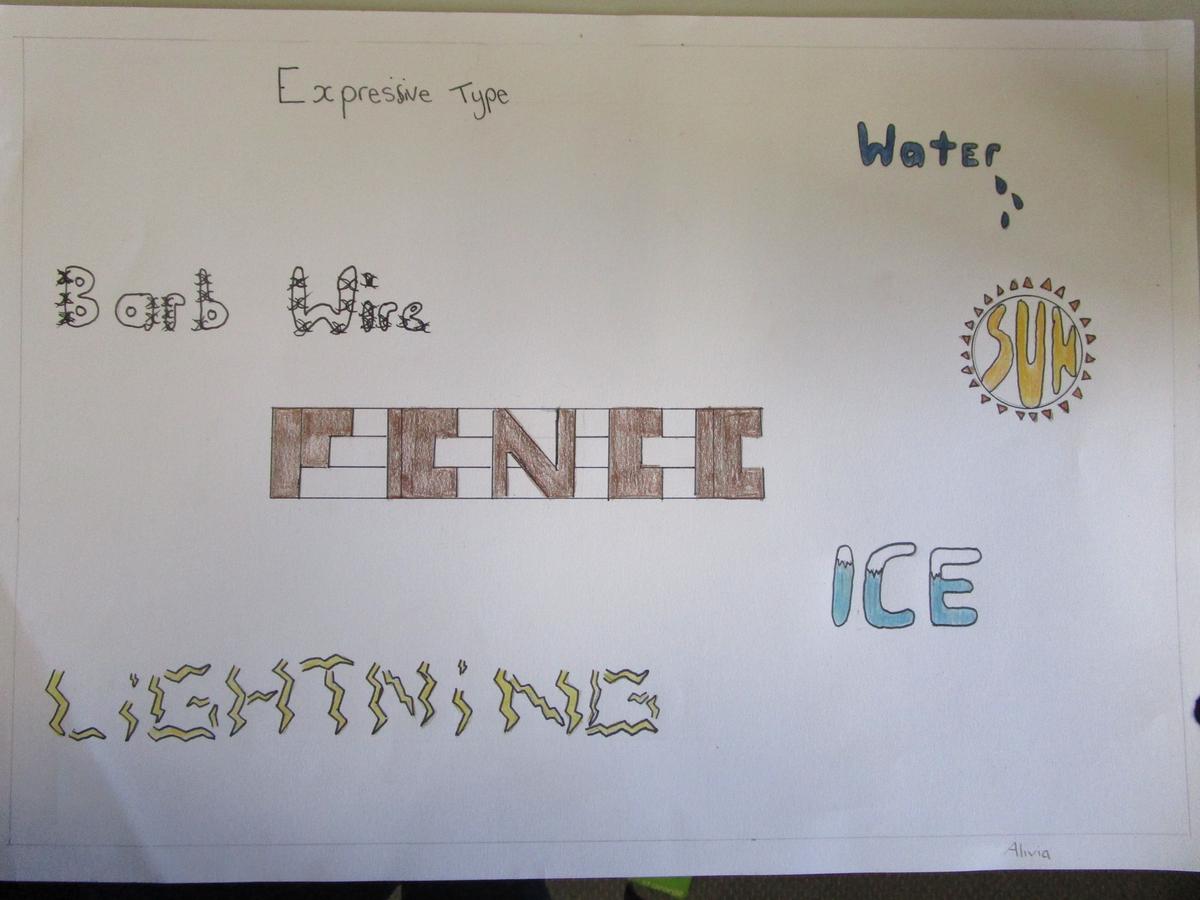 Expressive Type
Water
Barb Wire
SUN
FENCE
ICE
LiGHTNiNG
Alivia